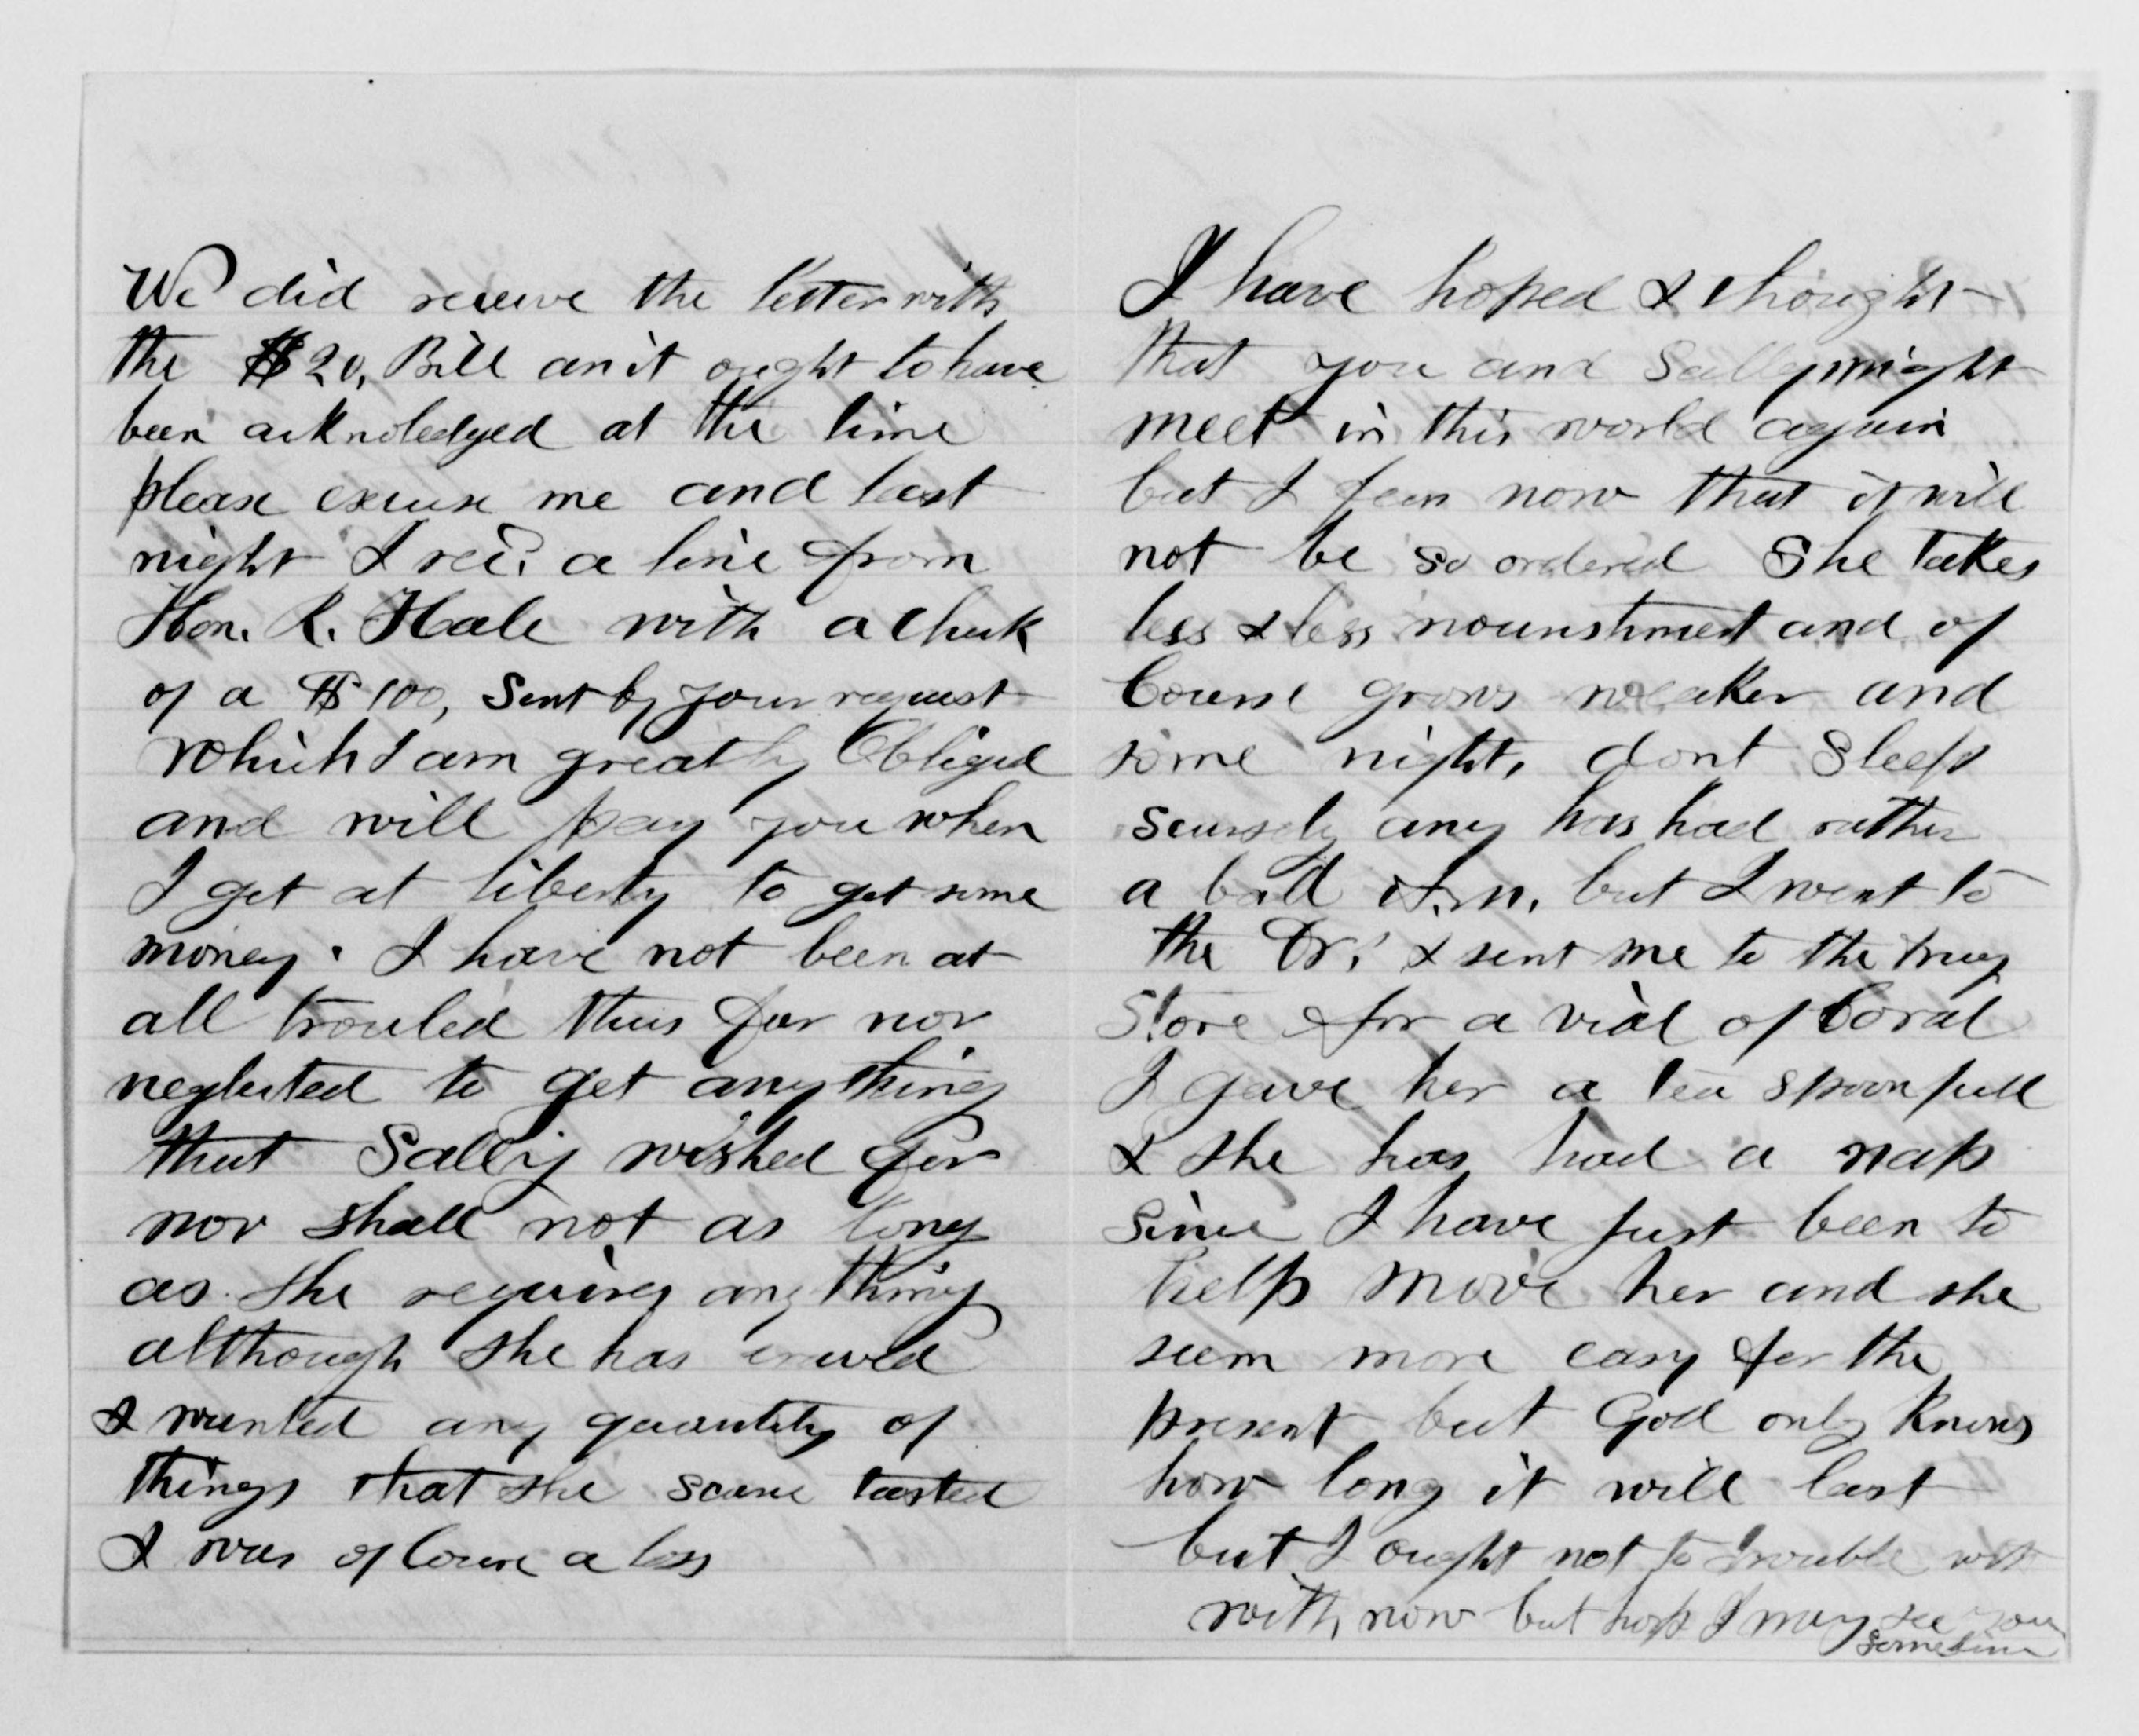 We did receive the letter with
the $20, Bill an it ought to have
been acknoledged at the time
please excuse me and last
night I recd. a line from
Hon. R. Hale with a Check
of a $100, Sent by your request
which I am greatly Obliged
and will pay you when
I get at liberty to get some
money. I have not been at
all trouled thus far nor
neglected to get any thing
that Sally wished for
nor shall not as long
as she requires any thing
although she has craved
& wanted any quantity of
things that she scarce tasted
& was of Course a loss
I have hoped & thought
that you and Sally might
meet in this world again
but I fear now that it will
not be so ordered She takes
less & less nourishment and of
Course grows weaker and
some nights dont Sleep
scarsely any has had rather
a bad but I went to
the Dr. & sent me to the drug
Store for a vial of
I gave her a tea spoon full
& she has had a nap
Since I have just been to
help move her and she
seem more easy for the
present but God only knows
how long it will last
but I ought not to trouble
with now but hope I may see you
sometime